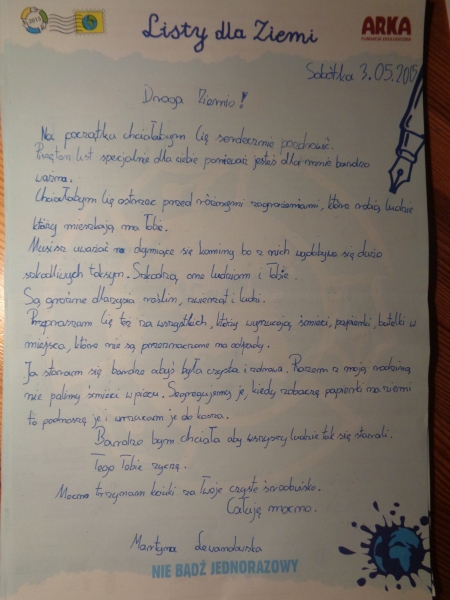 2015
Listy dla Ziemi
ARKA
FUNDACJA EKOLOGICZNA
Sobótka 3.05.2015
Droga Ziemio!
Na początku chciałabym Cię serdecznie pozdrowić.
Piszę ten list specjalnie dla ciebie ponieważ jesteś dla mnie bardzo
ważna.
Chciałabym Cię ostrzec przed różnymi zagrożeniami, które robią ludzie
którzy mieszkają na Tobie.
Musisz uważać na dymiące się kominy bo z nich wydobywa się dużo
szkodliwych toksyn. Szkodzą one ludziom i Tobie.
Są groźne dla życia roślin, zwierząt i ludzi.
Przepraszam Cię też za wszystkich, którzy wyrzucają śmieci, papierki, butelki w
miejsca, które nie są przeznaczone na odpady.
Ja staram się bardzo abyś była czysta i zdrowa. Razem z moją rodziną
nie palimy śmieci w piecu. Segregujemy je, kiedy zobaczę papierki na ziemi
to podnoszę je i wrzucam je do kosza.
Bardzo bym chciała aby wszyscy ludzie tak się starali.
Tego Tobie życzę.
Mocno trzymam kciuki za Twoje czyste środowisko.
Całuję mocno.
Martyna Lewandowska
NIE BĄDŹ JEDNORAZOWY